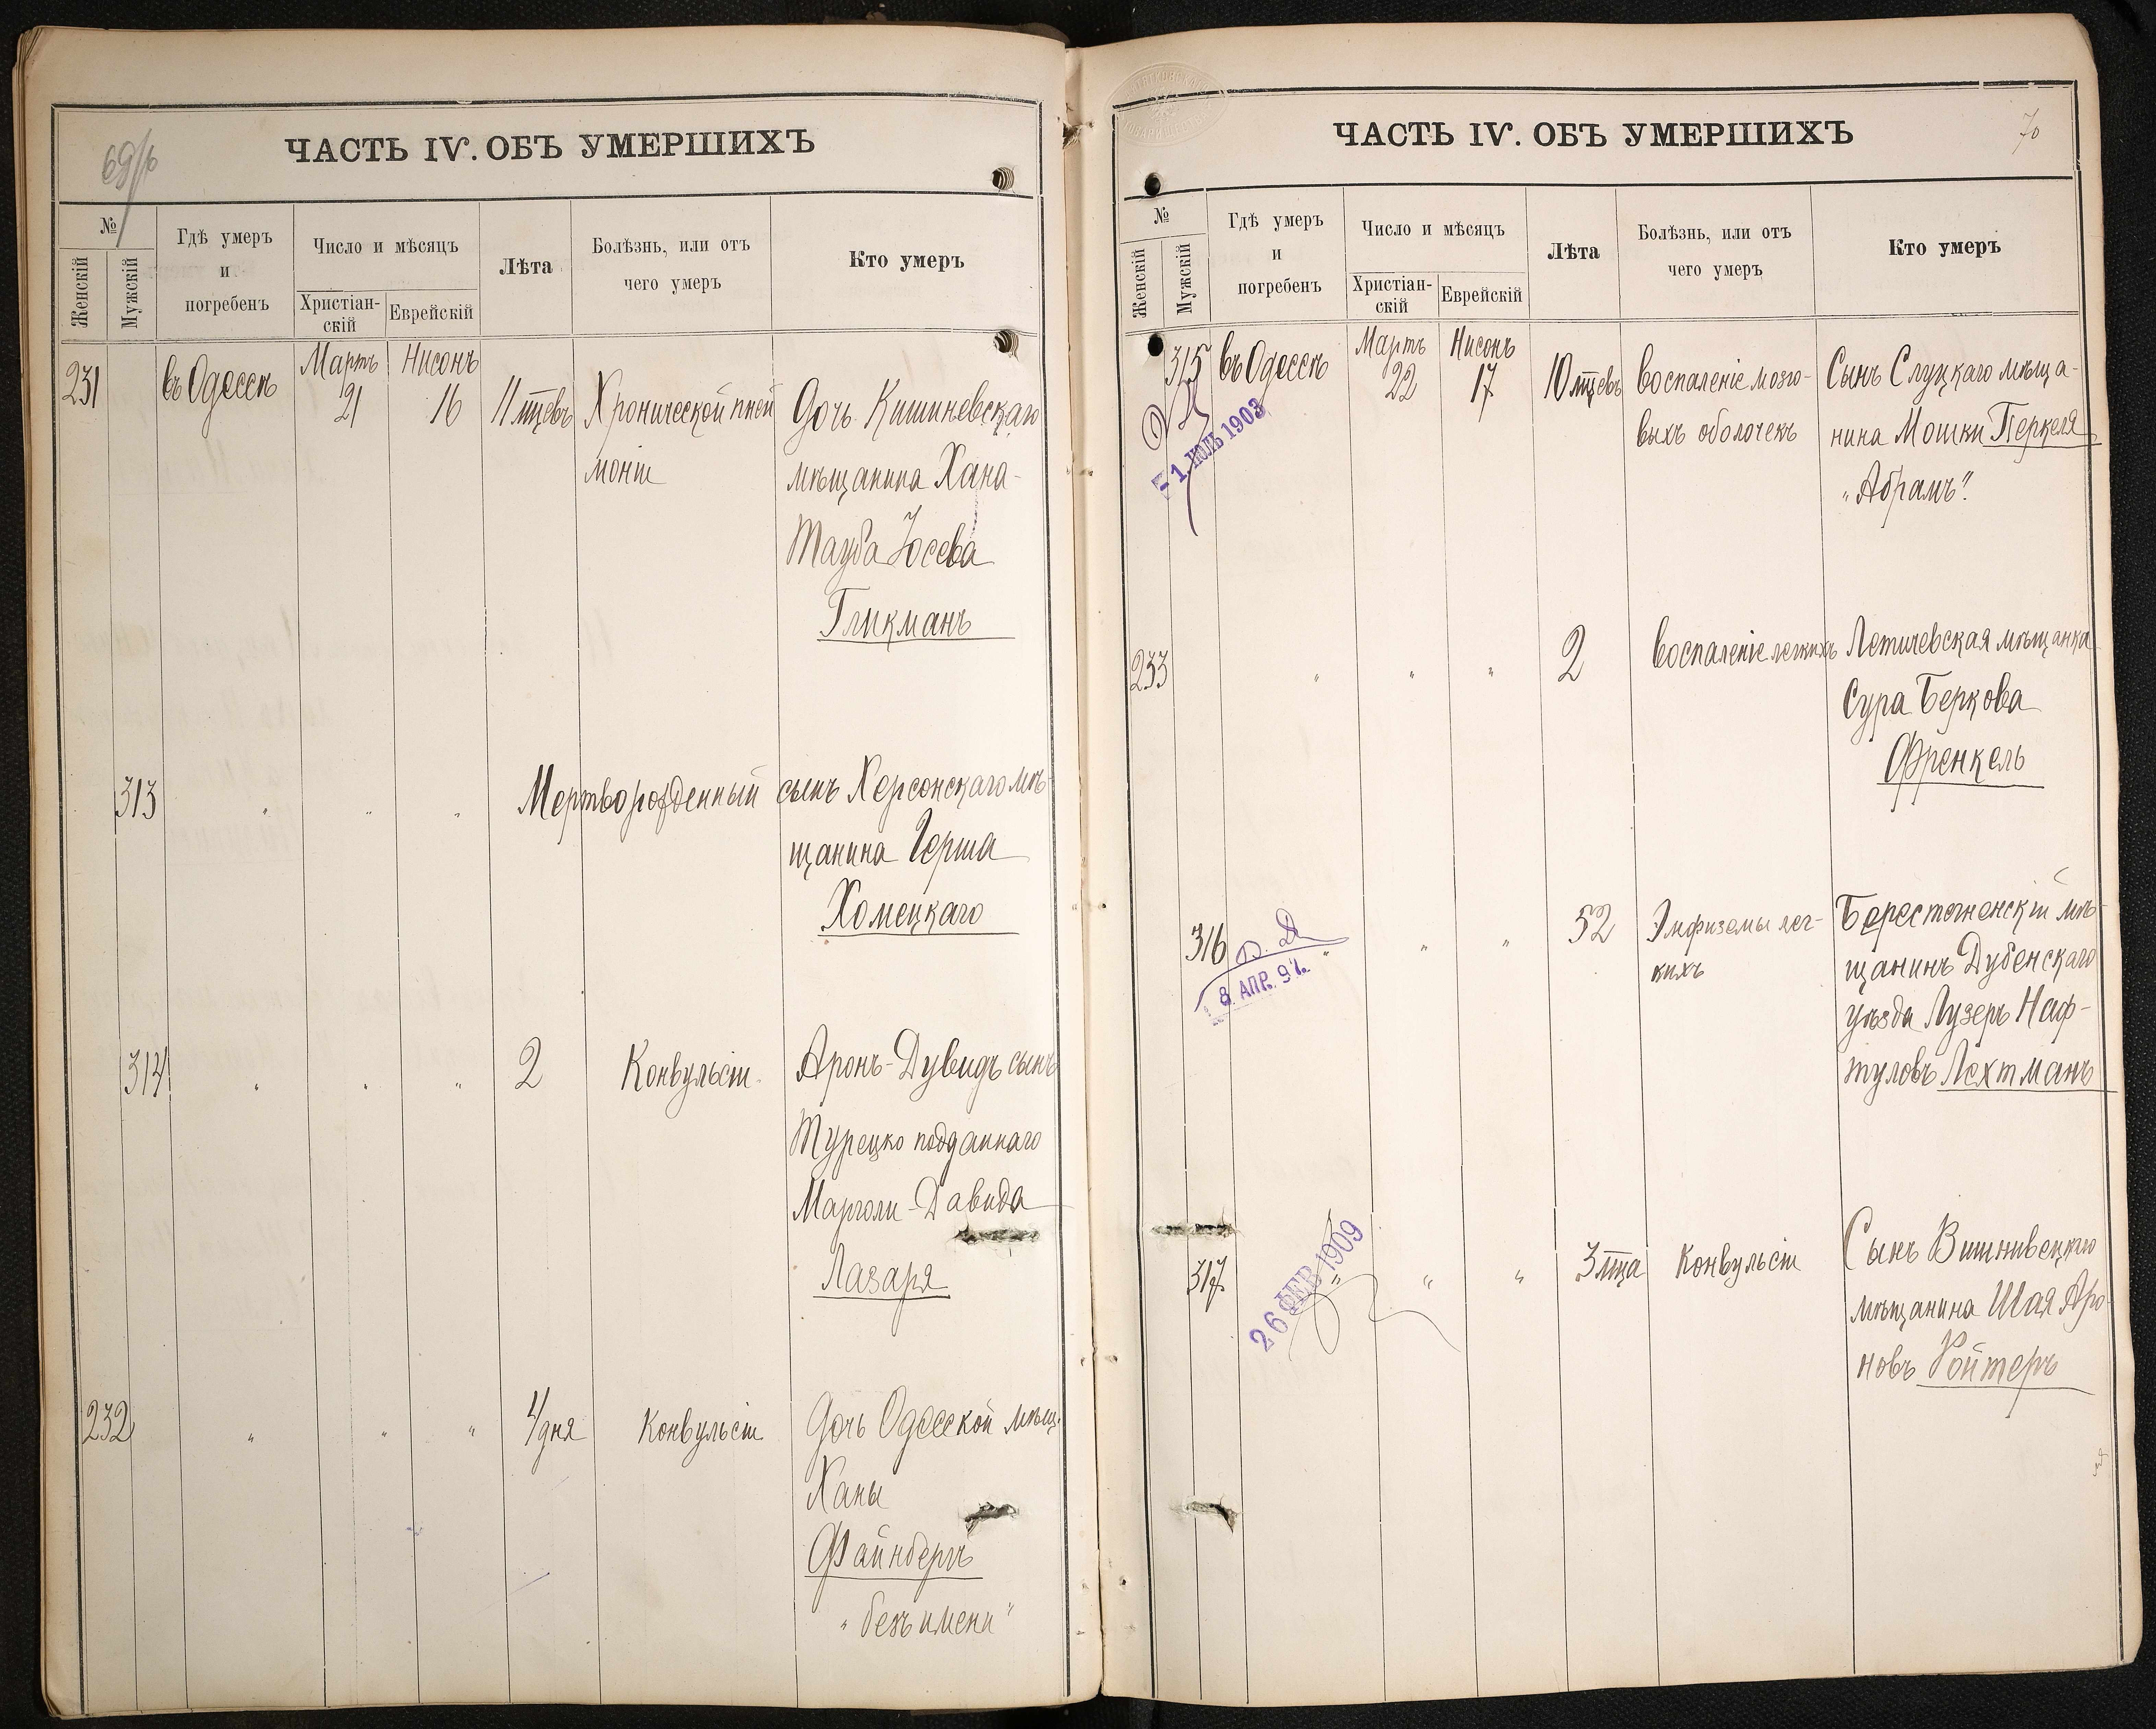 69/б
ЧАСТЬ IV. ОБЪ УМЕРШИХЪ
№
Женскій
Мужскій
Гдѣ умеръ
и
погребенъ
Число и мѣсяцъ
Христіан-
скій
Еврейскій
Лѣта
Болѣзнь, или отъ
чего умеръ
Кто умеръ
231 въ Одессѣ Мартъ 21 Нисонъ 16 11 мцевъ Хронической пней Дочь Кишиневскаго
моніи мѣщанина Хана-
Тауба Іосева
Гликманъ
313 " " " Мертворожденный сынъ Херсонскаго мѣ-
щанина Герша
Хомецкаго
314 " " " 2 Конвульсіи Аронъ-Дувидъ сынъ
Турецко подданнаго
Марголи-Давида
Лазаря
232 " " " 4 дня Конвульсіи Дочь Одесской мѣщ.
Ханы
Файнбергъ
"безъ имени"
ЧАСТЬ IV. ОБЪ УМЕРШИХЪ
70
№
Женскій
Мужскій
Гдѣ умеръ
и
погребенъ
Число и мѣсяцъ
Христіан-
скій
Еврейскій
Лѣта
Болѣзнь, или отъ
чего умеръ
Кто умеръ
315 въ Одессѣ Мартъ 22 Нисонъ 17 10 мцевъ Воспаленіе мозго- Сынъ Слуцкаго мѣща-
выхъ оболочекъ нина Мошки Перкеля
"Абрамъ".
1. ІЮЛЬ 1903
233 " " " 2 Воспаленіе легкихъ Летичевская мѣщанка
Сура Беркова
Френкель
316 " " " 52 Эмфиземы лег- Берестечненскій мѣ-
кихъ щанинъ Дубенскаго
8 АПР. 9
уѣзда Лузеръ Наф-
туловъ Лехтманъ
317 " " " 3 мца Конвульсіи Сынъ Вишнивецкаго
26 ФЕВ 1909
мѣщанина Шая Аро-
новъ Ройтеръ